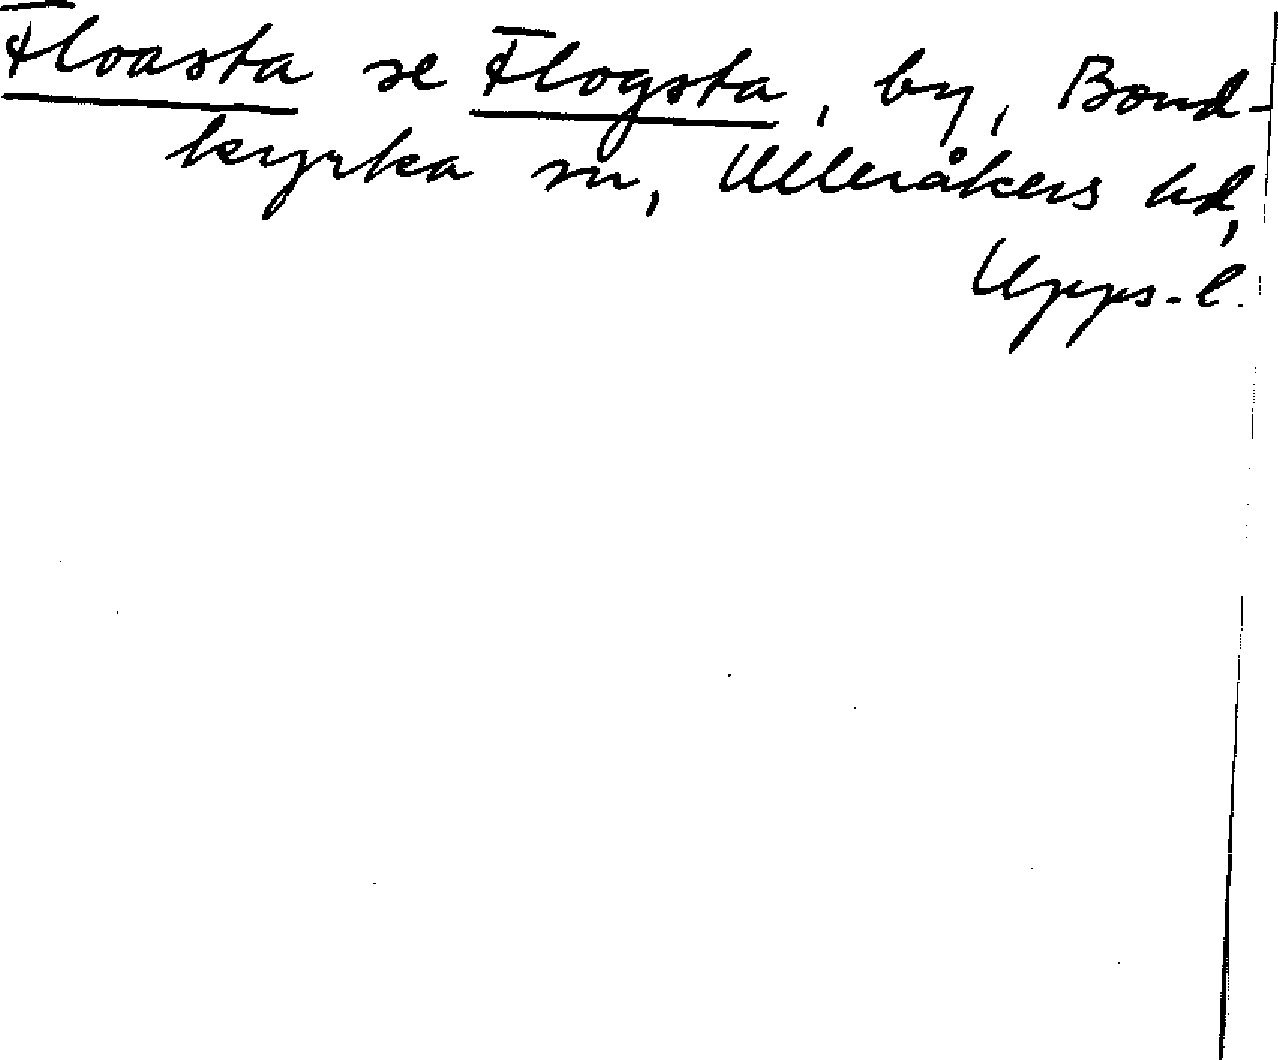 Floasta se Flogsta, by, Bond-
kyrka sn, Ulleråkers hd,
Upps. l.